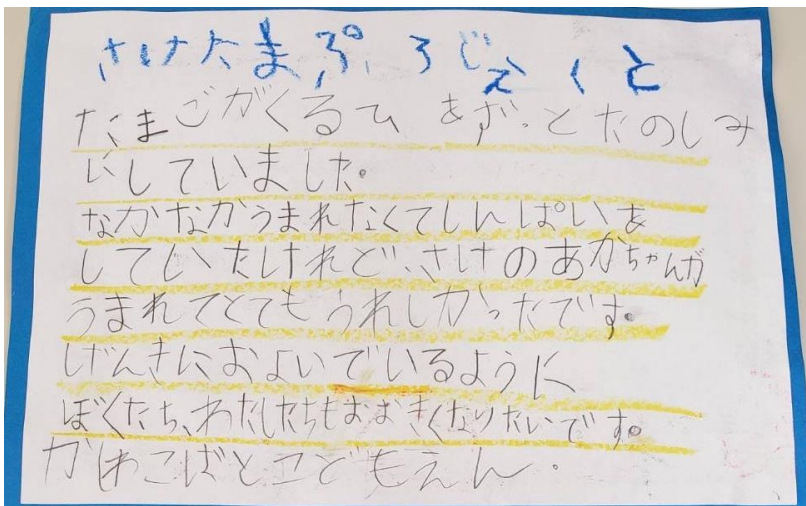 さけたまぷろじぇくと
たまごがくるひをずっとたのしみ
にしていました。
なかなかうまれなくてしんぱいを
していたけれど、さけのあかちゃんが
うまれてとてもうれしかったです。
げんきにおよいでいるように
ぼくたち、わたしたちもおおきくなりたいです。
かしわこばとこどもえん.